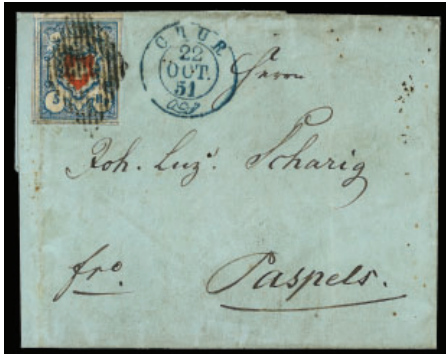 CHUR
22
OCT.
51
Herrn
Joh. Luz. Scharig
fro.
Paspels.